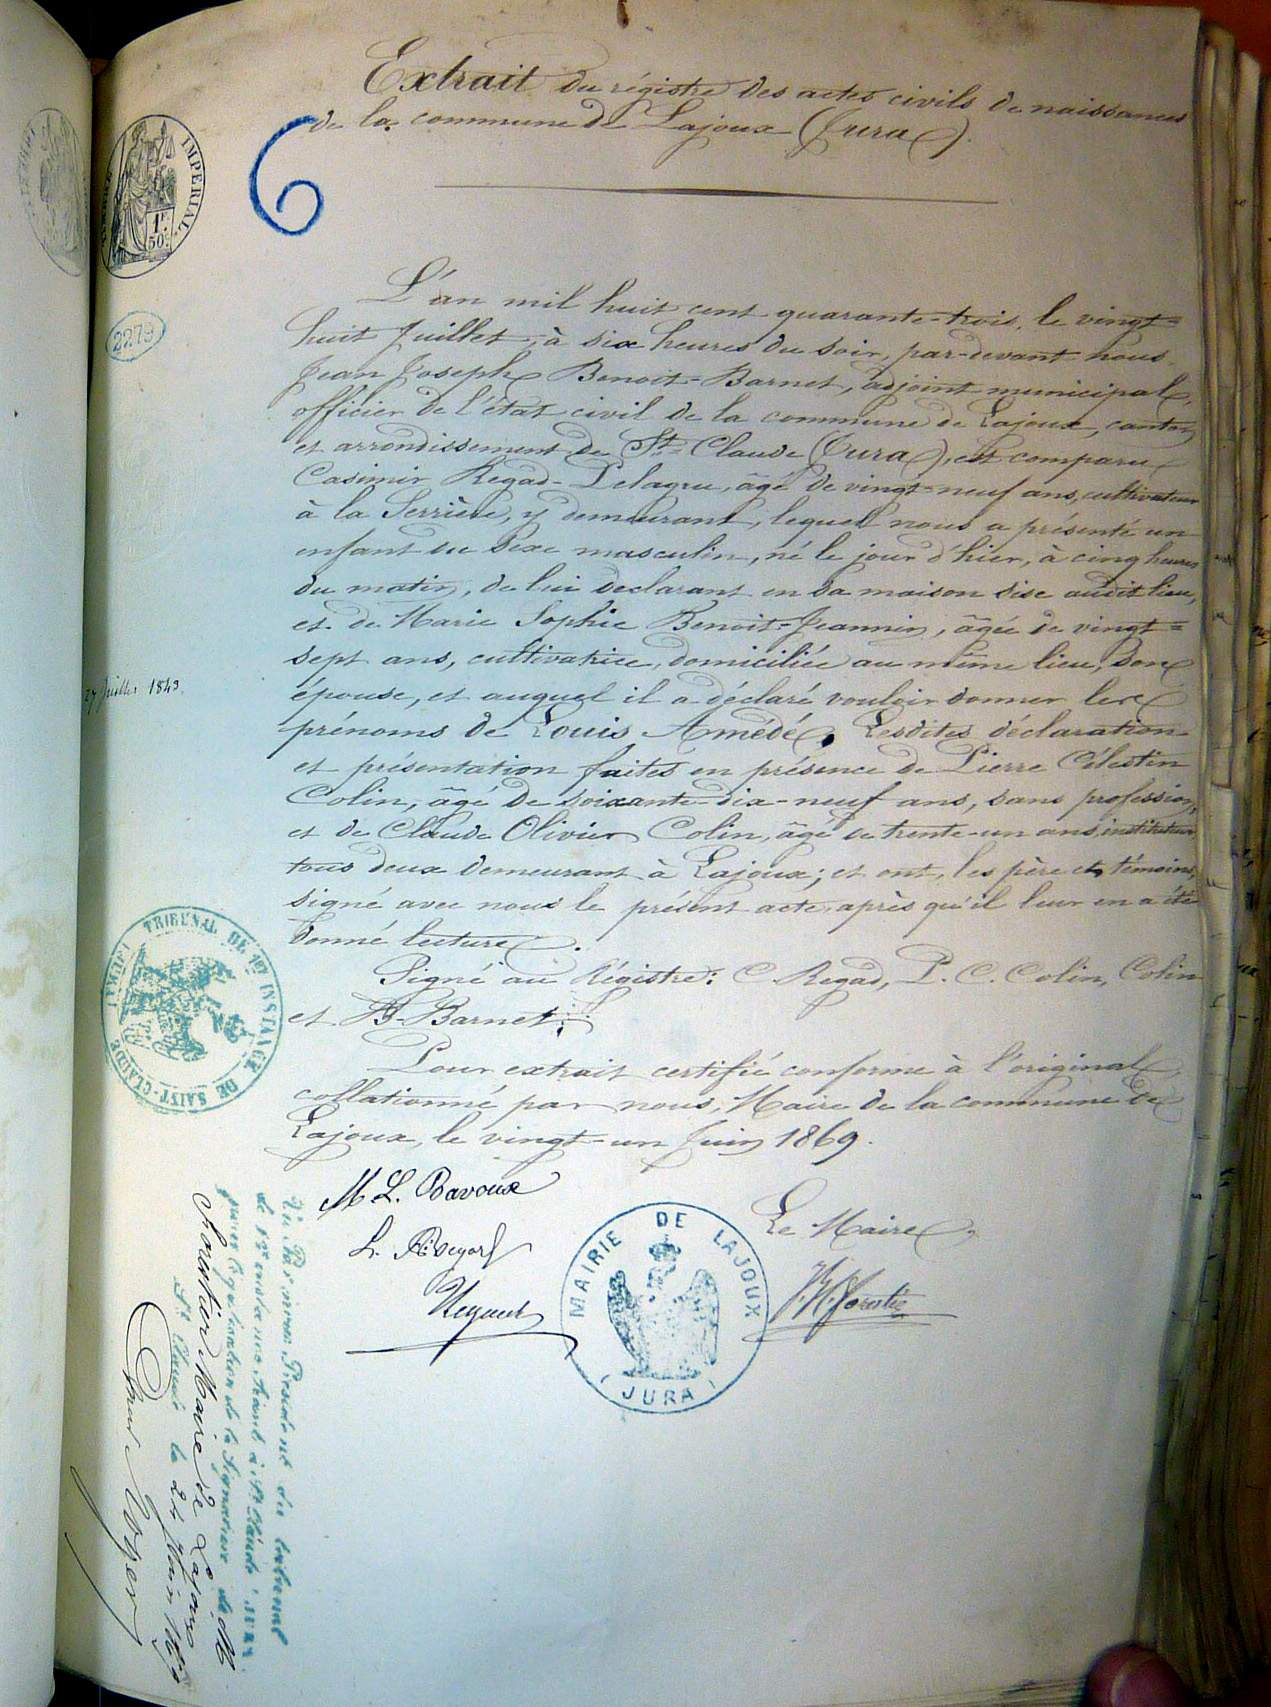 Extrait du régistre des actes civils de naissances
de la commune de Lajoux (Jura).
6
IMPÉRIAL
1F
50c
2279
L'an mil huit cent quarante-trois, le vingt=
huit Juillet, à six heures du soir, par-devant nous
Jean Joseph Benoit=Barnet, adjoint municipal,
officier de l'état civil de la commune de Lajoux, canton
et arrondissement de St= Claude (Jura), est comparu
Casimir Regad-Pelagru, âgé de vingt=neuf ans, cultivateur
à la Serrière, y demeurant, lequel nous a présenté un
enfant du sexe masculin, né le jour d'hier, à cinq heures
du matin, de lui déclarant en sa maison sise audit lieu,
et de Marie Sophie Benoit=Jeannin, âgée de vingt=
sept ans, cultivatrice, domiciliée au même lieu, son
27 Juillet 1843.
épouse, et auquel il a déclaré vouloir donner les
prénoms de Louis Amédé. Lesdites déclaration
et présentation faites en présence de Pierre Célestin
Colin, âgé de soixante-dix-neuf ans, sans profession,
et de Claude Olivier Colin, âgé de trente-un ans, instituteur
tous deux demeurant à Lajoux; et ont, les père et témoins,
signé avec nous le présent acte, après qu'il leur en a été
donné lecture.
Signé au Régistre: C Regad, P. C. Colin, Colin
et B-Barnet.
Pour extrait certifié conforme à l'original
collationné par nous, Maire de la commune de
Lajoux, le vingt-un Juin 1869.
TRIBUNAL DE 1ER INSTANCE DE SAINT-CLAUDE (JURA)
M L. Bavoux
Le Maire
MAIRIE DE LAJOUX
(JURA)
Vu Par nous Président du tribunal
de 1ère instance séant à St Claude JURA
pour légalisation de la Signature de Mr
Forestier Maire de Lajoux
St Claude le 24 Juin 1869